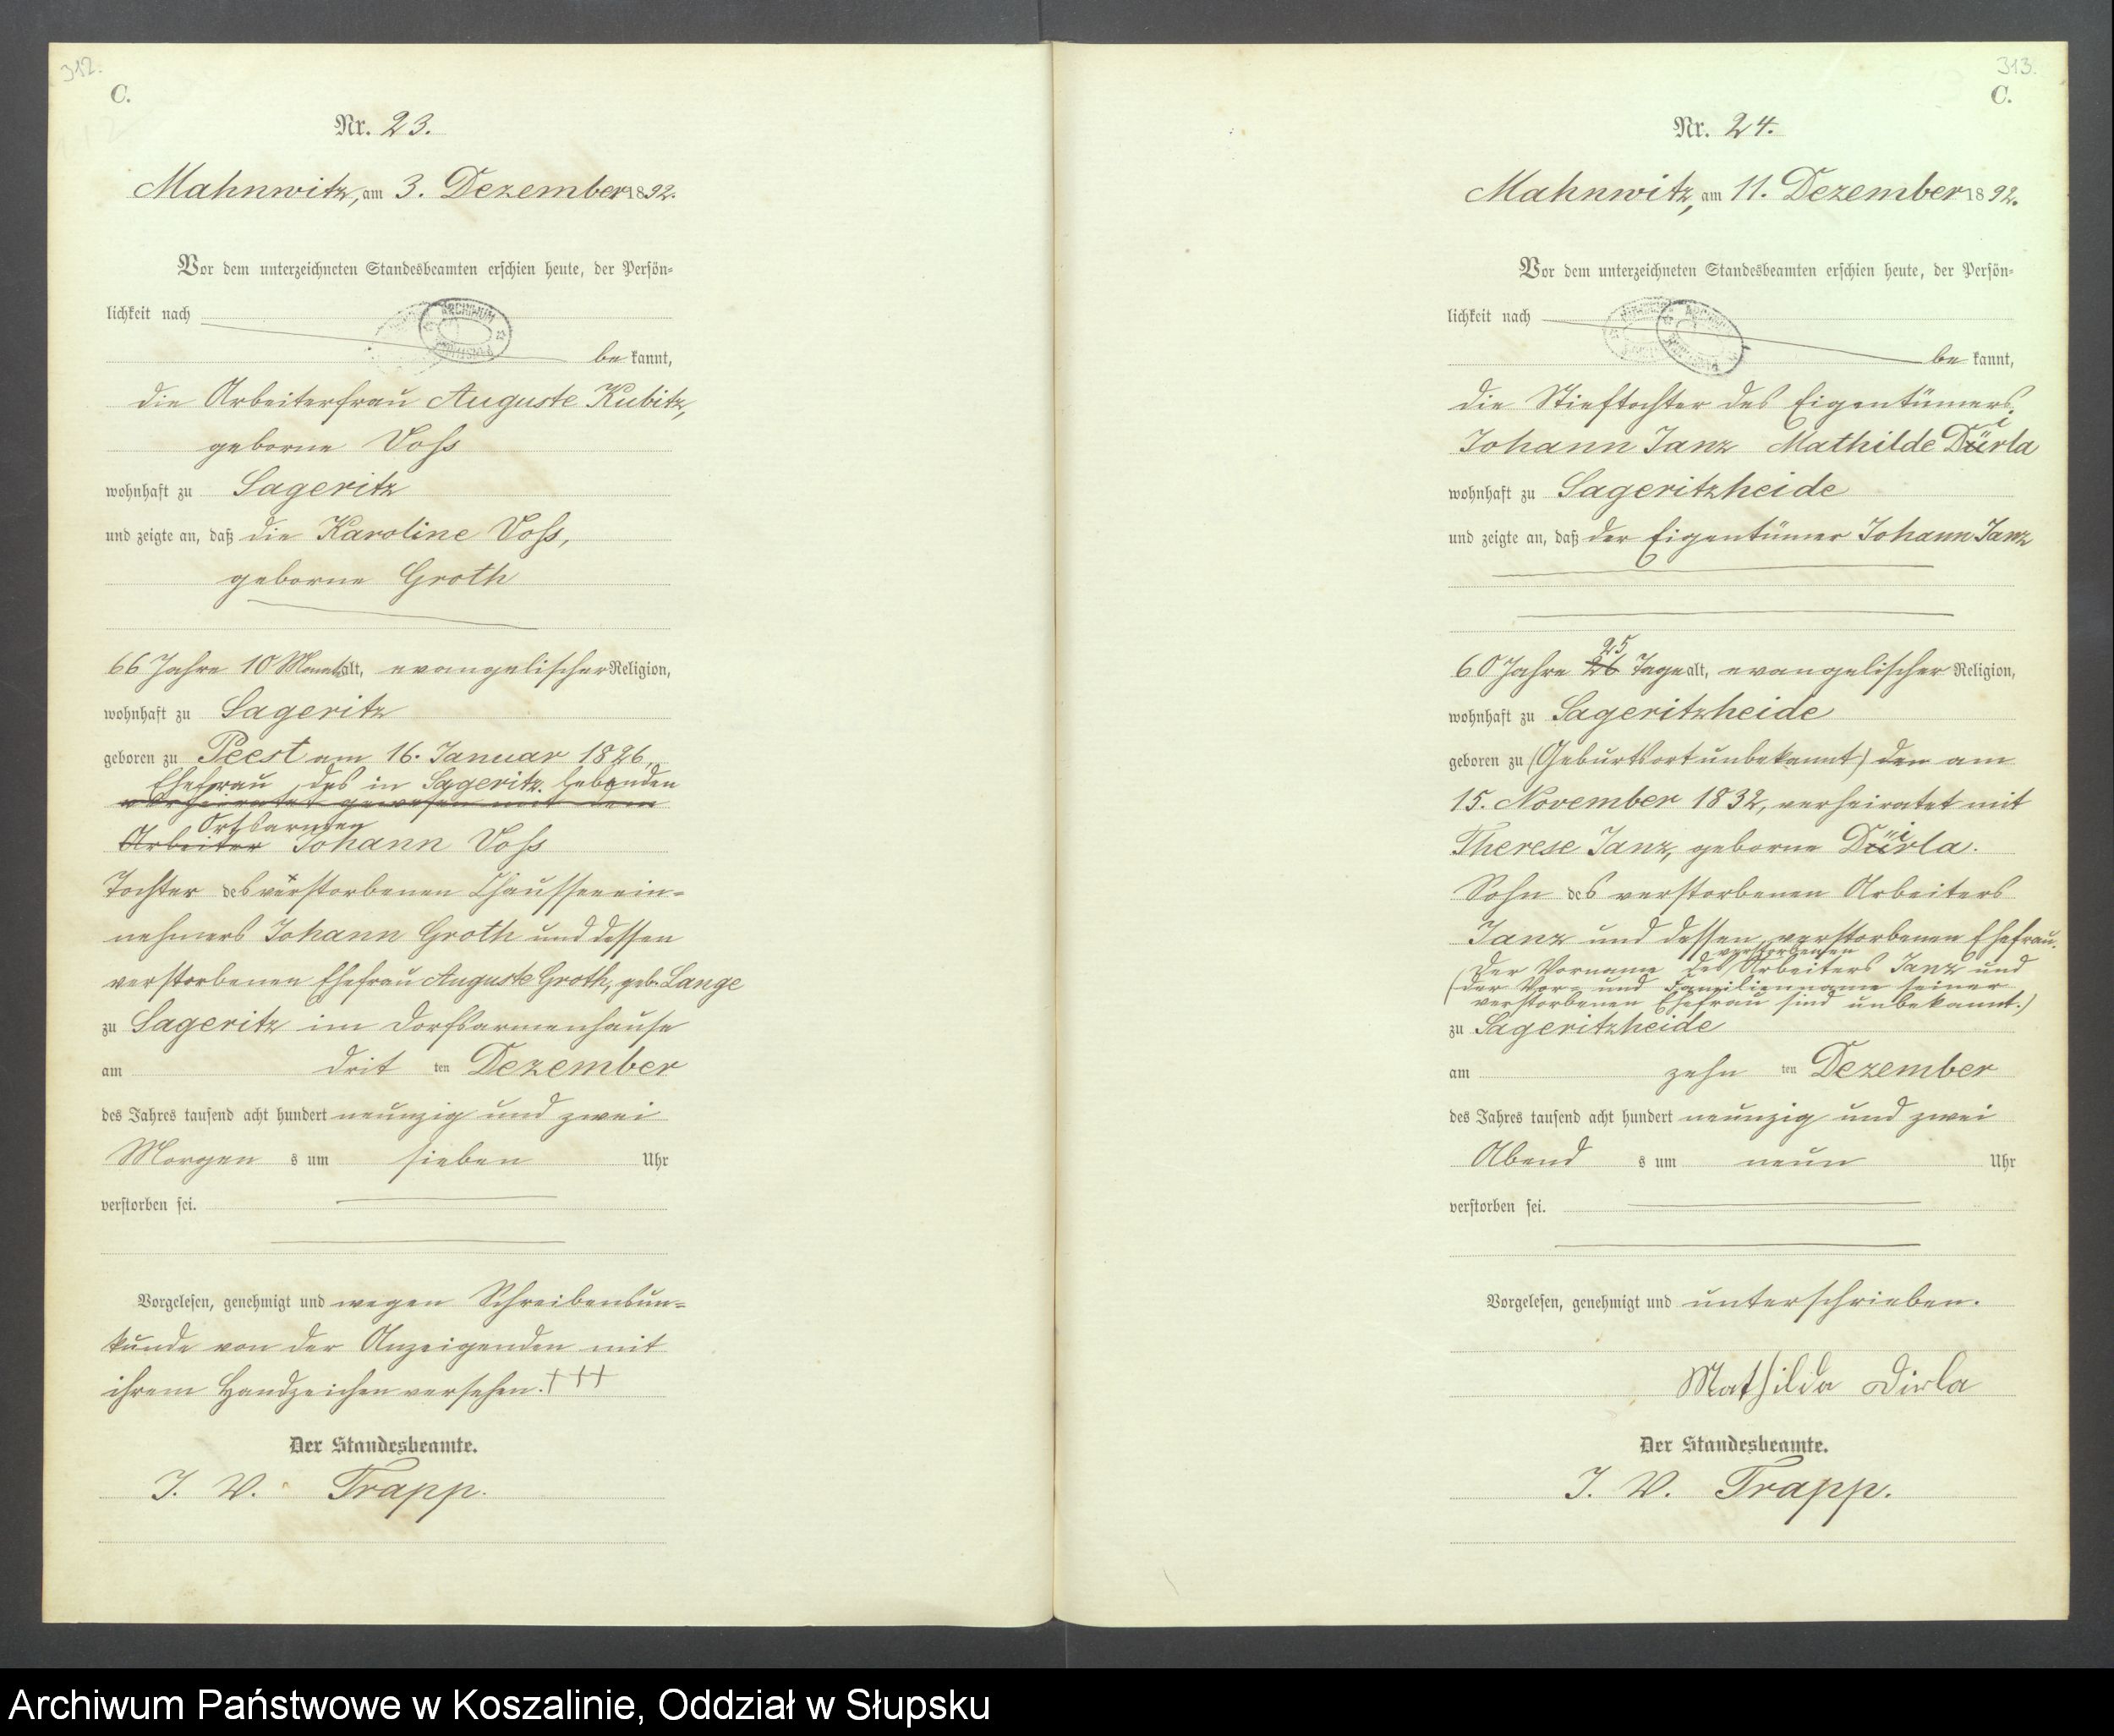 312.
C.
Nr. 23.
Mahnwitz, am 3. Dezember 1892.
Vor dem unterzeichneten Standesbeamten erschien heute, der Persön-
lichkeit nach
be kannt,
die Arbeiterfrau Auguste Kubitz,
geborne Voss
wohnhaft zu Sageritz
und zeigte an, daß die Karoline Voss,
geborne Groth
66 Jahre 10 Monat alt, evangelischer Religion,
wohnhaft zu Sageritz
geboren zu Peest am 16. Januar 1826,
Ehefrau des in Sageritz lebenden
verheiratet gewesen mit dem
Ortsarmen
Arbeiter Johann Voss
Tochter des verstorbenen Chausseeein-
nehmers Johann Groth und dessen
verstorbenen Ehefrau Auguste Groth, geb. Lange
zu Sageritz im Dorfsarmenhause
am drit ten Dezember
des Jahres tausend acht hundert neunzig und zwei
Morgen s um sieben Uhr
verstorben sei.
Vorgelesen, genehmigt und wegen Schreibensun-
kunde von der Anzeigenden mit
ihrem Handzeichen versehen. +++
Der Standesbeamte.
J. V. Trapp.
313.
C.
Nr. 24.
Mahnwitz, am 11. Dezember 1892.
Vor dem unterzeichneten Standesbeamten erschien heute, der Persön-
lichkeit nach
be kannt,
die Stieftochter des Eigentümers
i
Johann Janz Mathilde Dürla
wohnhaft zu Sageritzheide
und zeigte an, daß der Eigentümer Johann Janz
25
60 Jahre 26 Tage alt, evangelischer Religion,
wohnhaft zu Sageritzheide
geboren zu (Geburtsort unbekannt) den am
15. November 1832, verheiratet mit
i
Therese Janz, geborne Dürla.
Sohn des verstorbenen Arbeiters
Janz und dessen verstorbenen Ehefrau.
verstorbenen
(Der Vorname des Arbeiters Janz und
der Vor- und Familienname seiner
verstorbenen Ehefrau sind unbekannt.)
zu Sageritzheide
am zehn ten Dezember
des Jahres tausend acht hundert neunzig und zwei
Abend s um neun Uhr
verstorben sei.
Vorgelesen, genehmigt und unterschrieben.
Mathilde Dirla
Der Standesbeamte.
J. V. Trapp.
Archiwum Państwowe w Koszalinie, Oddział w Słupsku